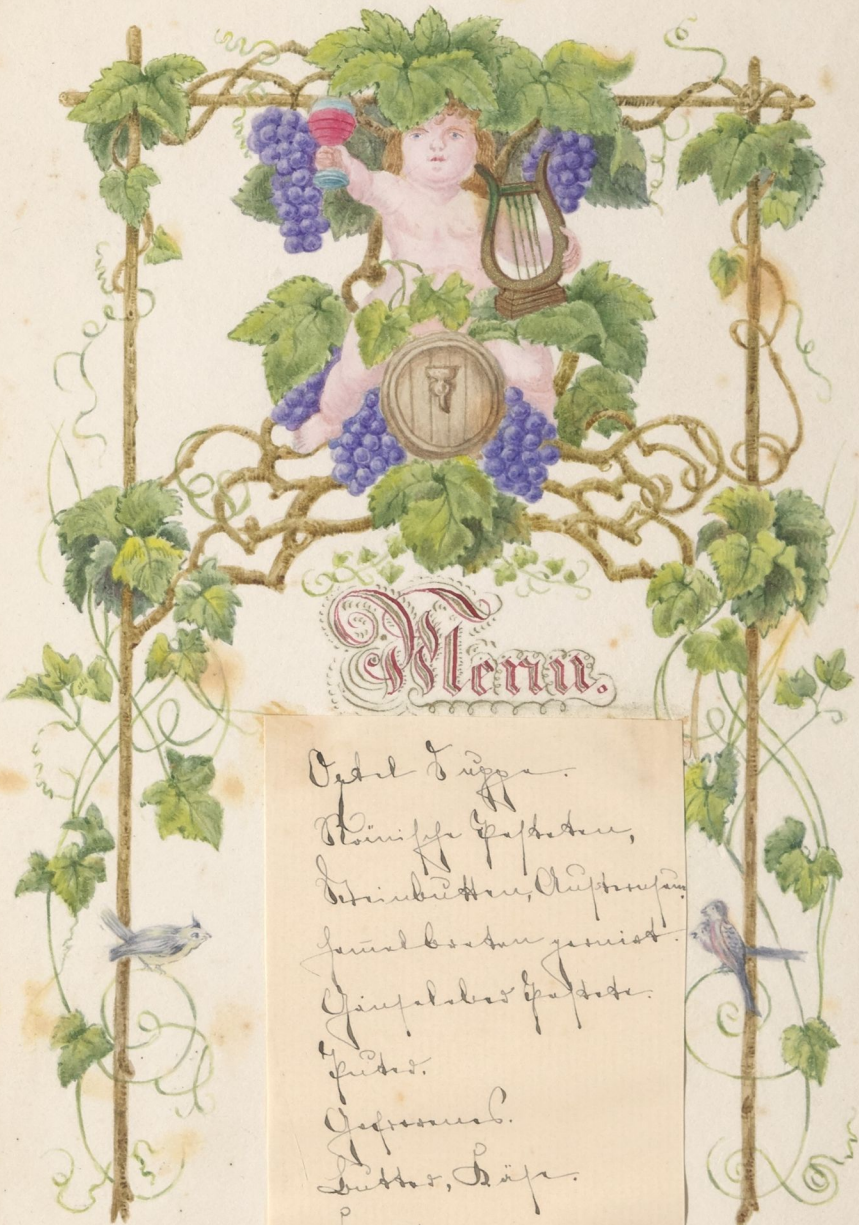 Menu.
Oxtel Suppe.
Römische Pasteten,
Steinbutten, Austernsauç
Hamelbraten garnirt.
Gänseleber Pastete.
Puter.
Gefrorenes.
Butter, Käse.